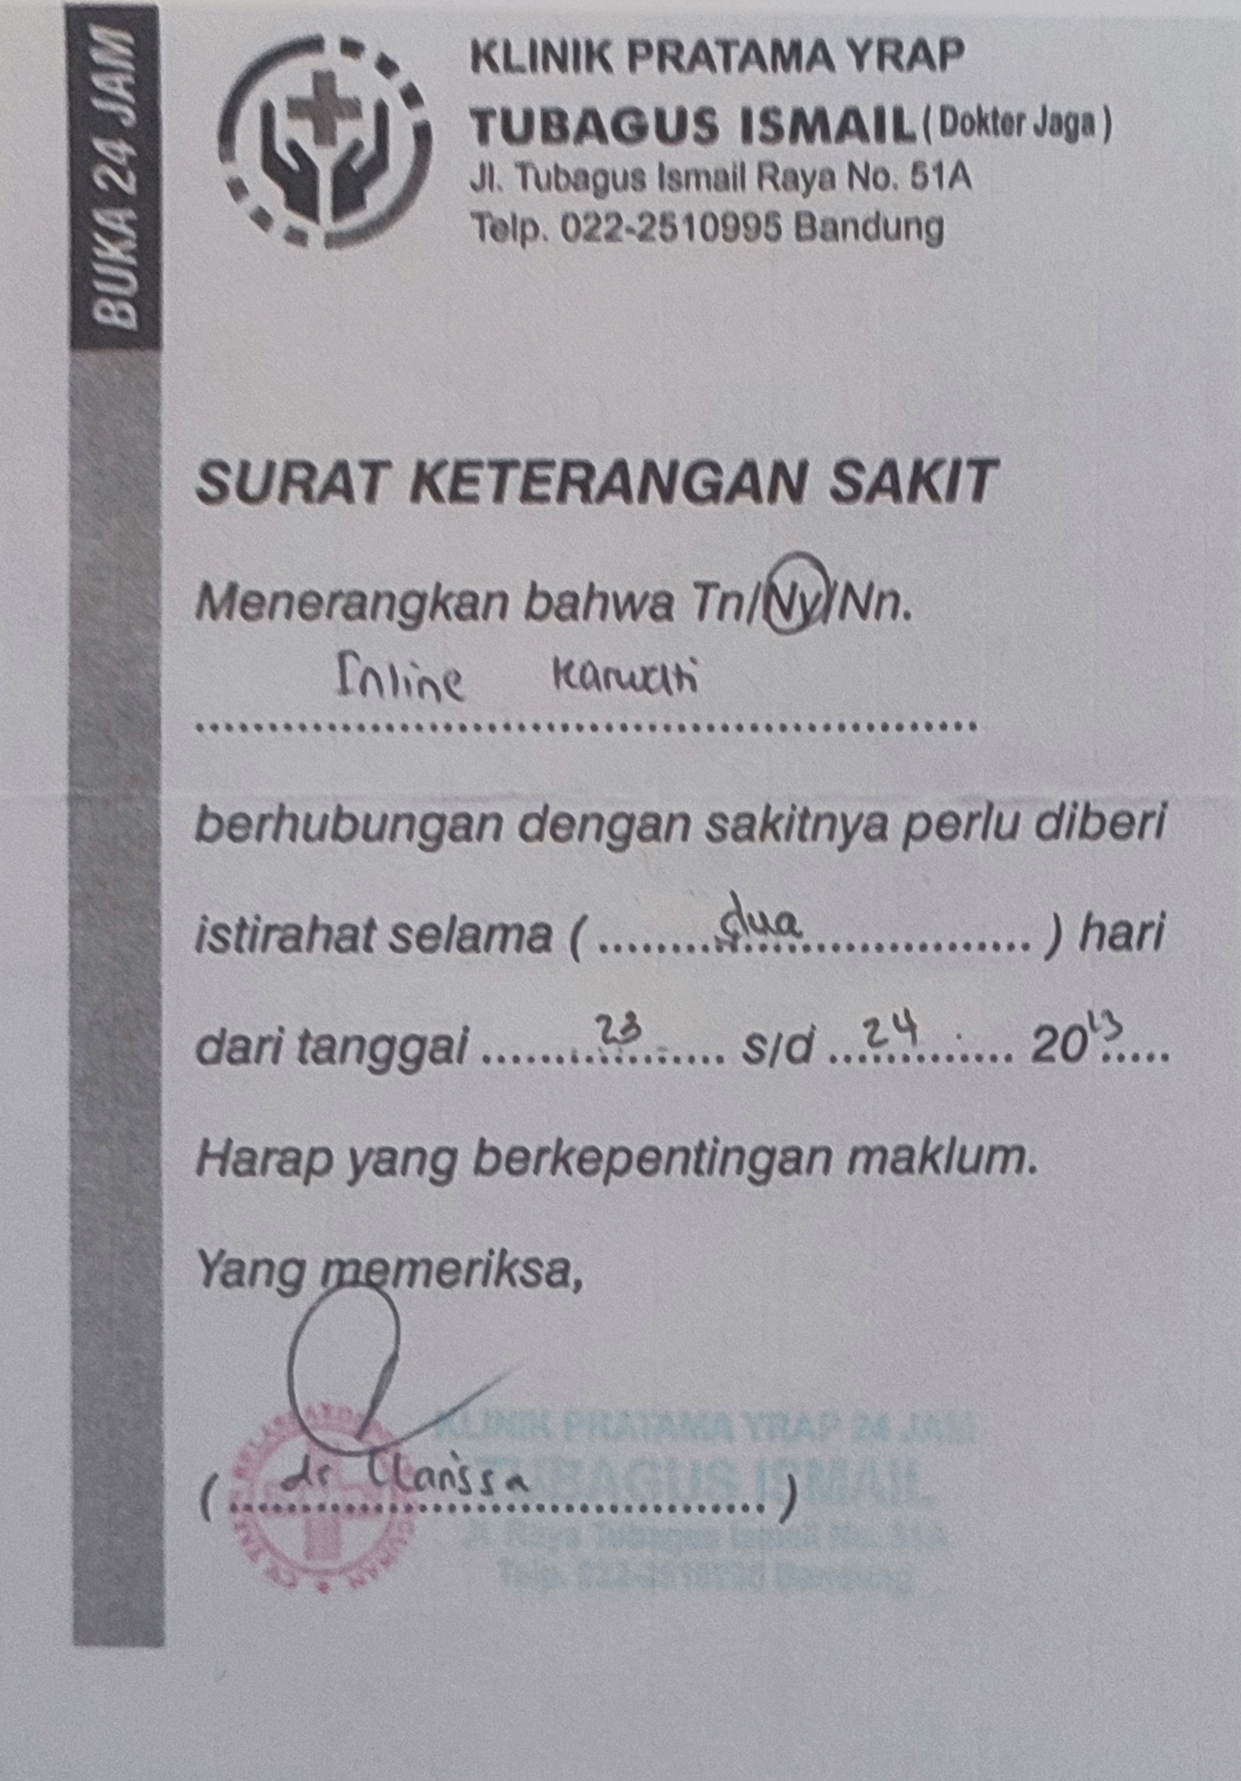 BUKA 24 JAM
KLINIK PRATAMA YRAP
TUBAGUS ISMAIL (Dokter Jaga)
Jl. Tubagus Ismail Raya No. 51A
Telp. 022-2510995 Bandung
SURAT KETERANGAN SAKIT
Menerangkan bahwa Tn/Ny/Nn.
Inline Karwati
berhubungan dengan sakitnya perlu diberi
istirahat selama (........dua........) hari
dari tanggal ........23........ s/d ....24.... 2013
Harap yang berkepentingan maklum.
Yang memeriksa,
KLINIK PRATAMA YRAP 24 JAM
TUBAGUS ISMAIL
(dr Clarissa)
Jl. Raya Tubagus Ismail No. 51A
Telp. 022-2510995 Bandung